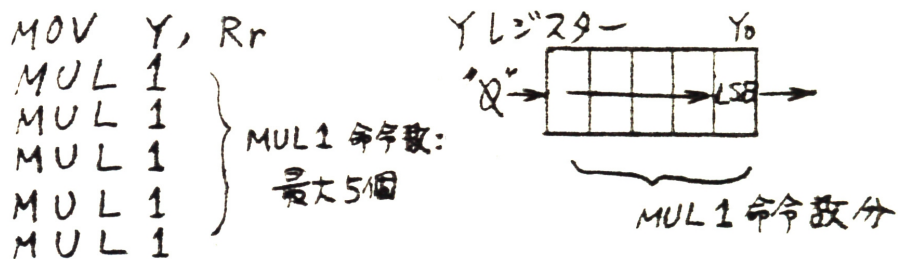 MOV Y, Rr
MUL 1
MUL 1
MUL 1
MUL 1
MUL 1
MUL1 命令数:
最大5個
Yレジスター Y0
"0"
LSB
MUL1 命令数分